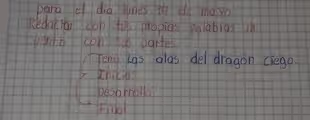 para el dia lunes 12 de mayo
Redactar con tus propias palabras un
con sus partes
Tema Las alas del dragon ciego
Inicio
Desarrollo
Final